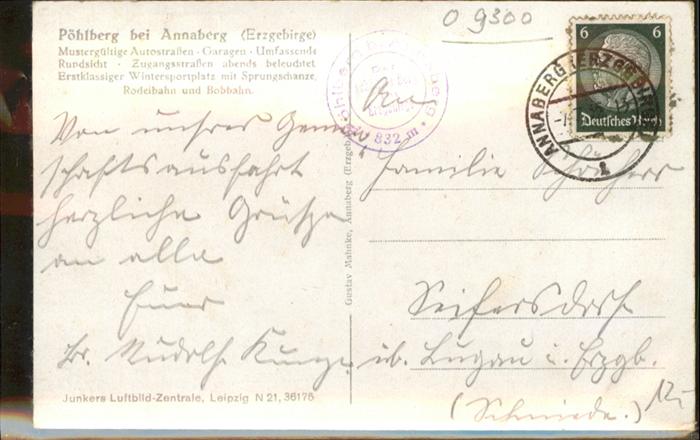 o 9300
Pöhlberg bei Annaberg (Erzgebirge)
Mustergültige Autostraßen · Garagen · Umfassende
Rundsicht · Zugangsstraßen abends beleuchtet
Erstklassiger Wintersportplatz mit Sprungschanze,
Rodelbahn und Bobbahn.
832 m
6 6
Deutsches Reich
ANNABERG (ERZGEBIRGE)
An
Von unsrer Gemein
schaftsausfahrt
herzliche Grüße
an alle
Euer
Br. Rudolf Kunze
Familie
Seifersdorf
üb. Lugau i. Erzgb.
(Schmiede.)
12,-
Gustav Mahnke, Annaberg (Erzgeb.)
Junkers Luftbild-Zentrale, Leipzig N 21, 36176